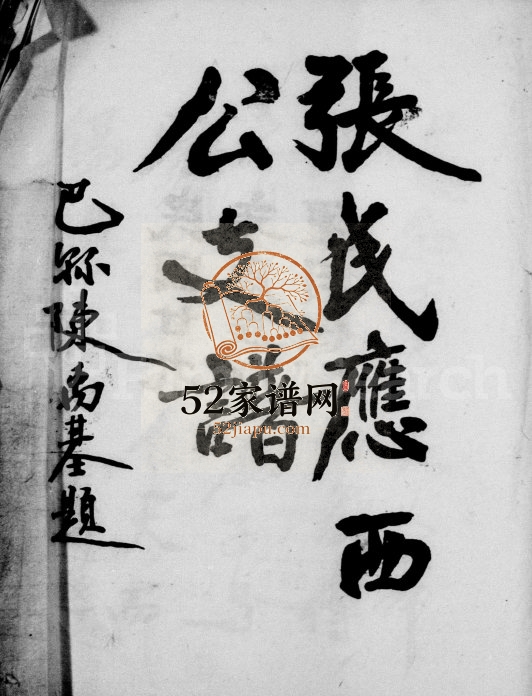 張氏應西
公支譜
巴縣陳禹基題
52家谱网
52jiapu.com